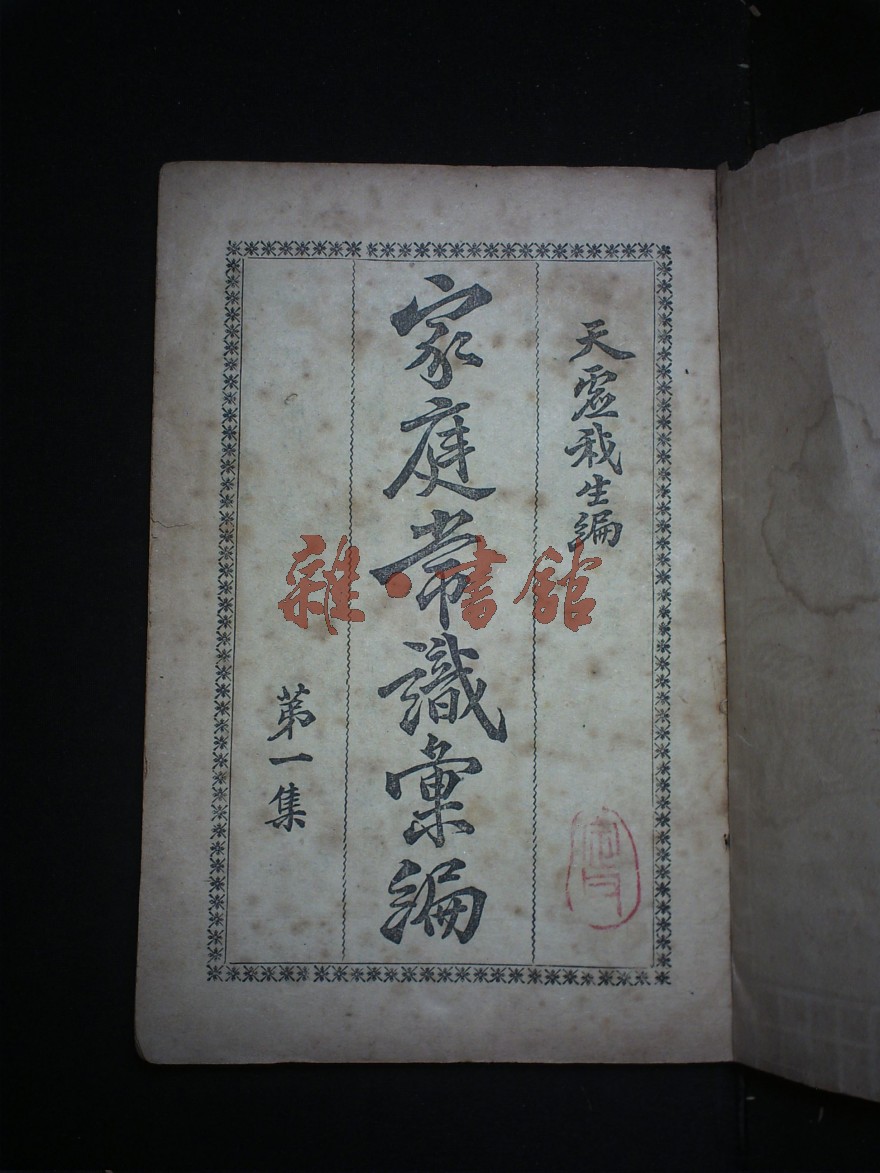 天虛我生編
家庭常識彙編
第一集
雜·書館